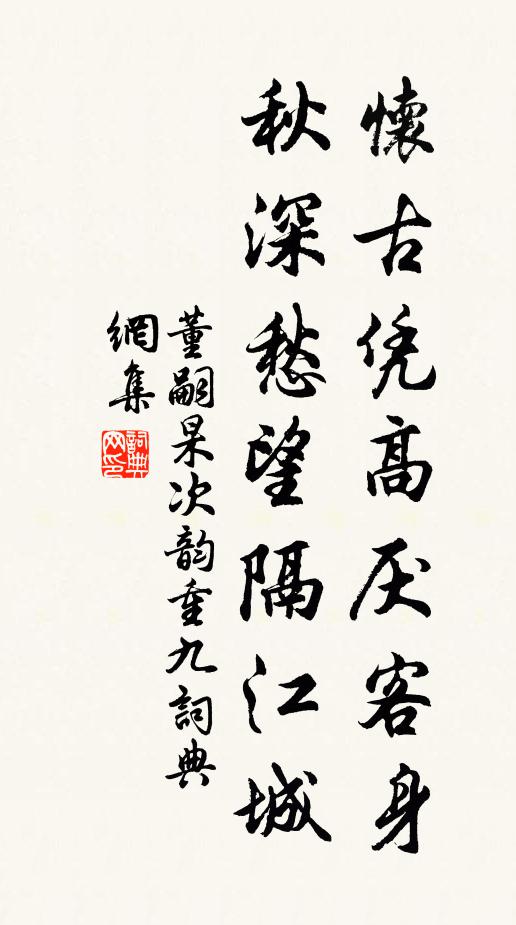 懷古凭高厌客身
秋深愁望隔江城
董嗣杲次韵重九詞典
網集
詞典
网印